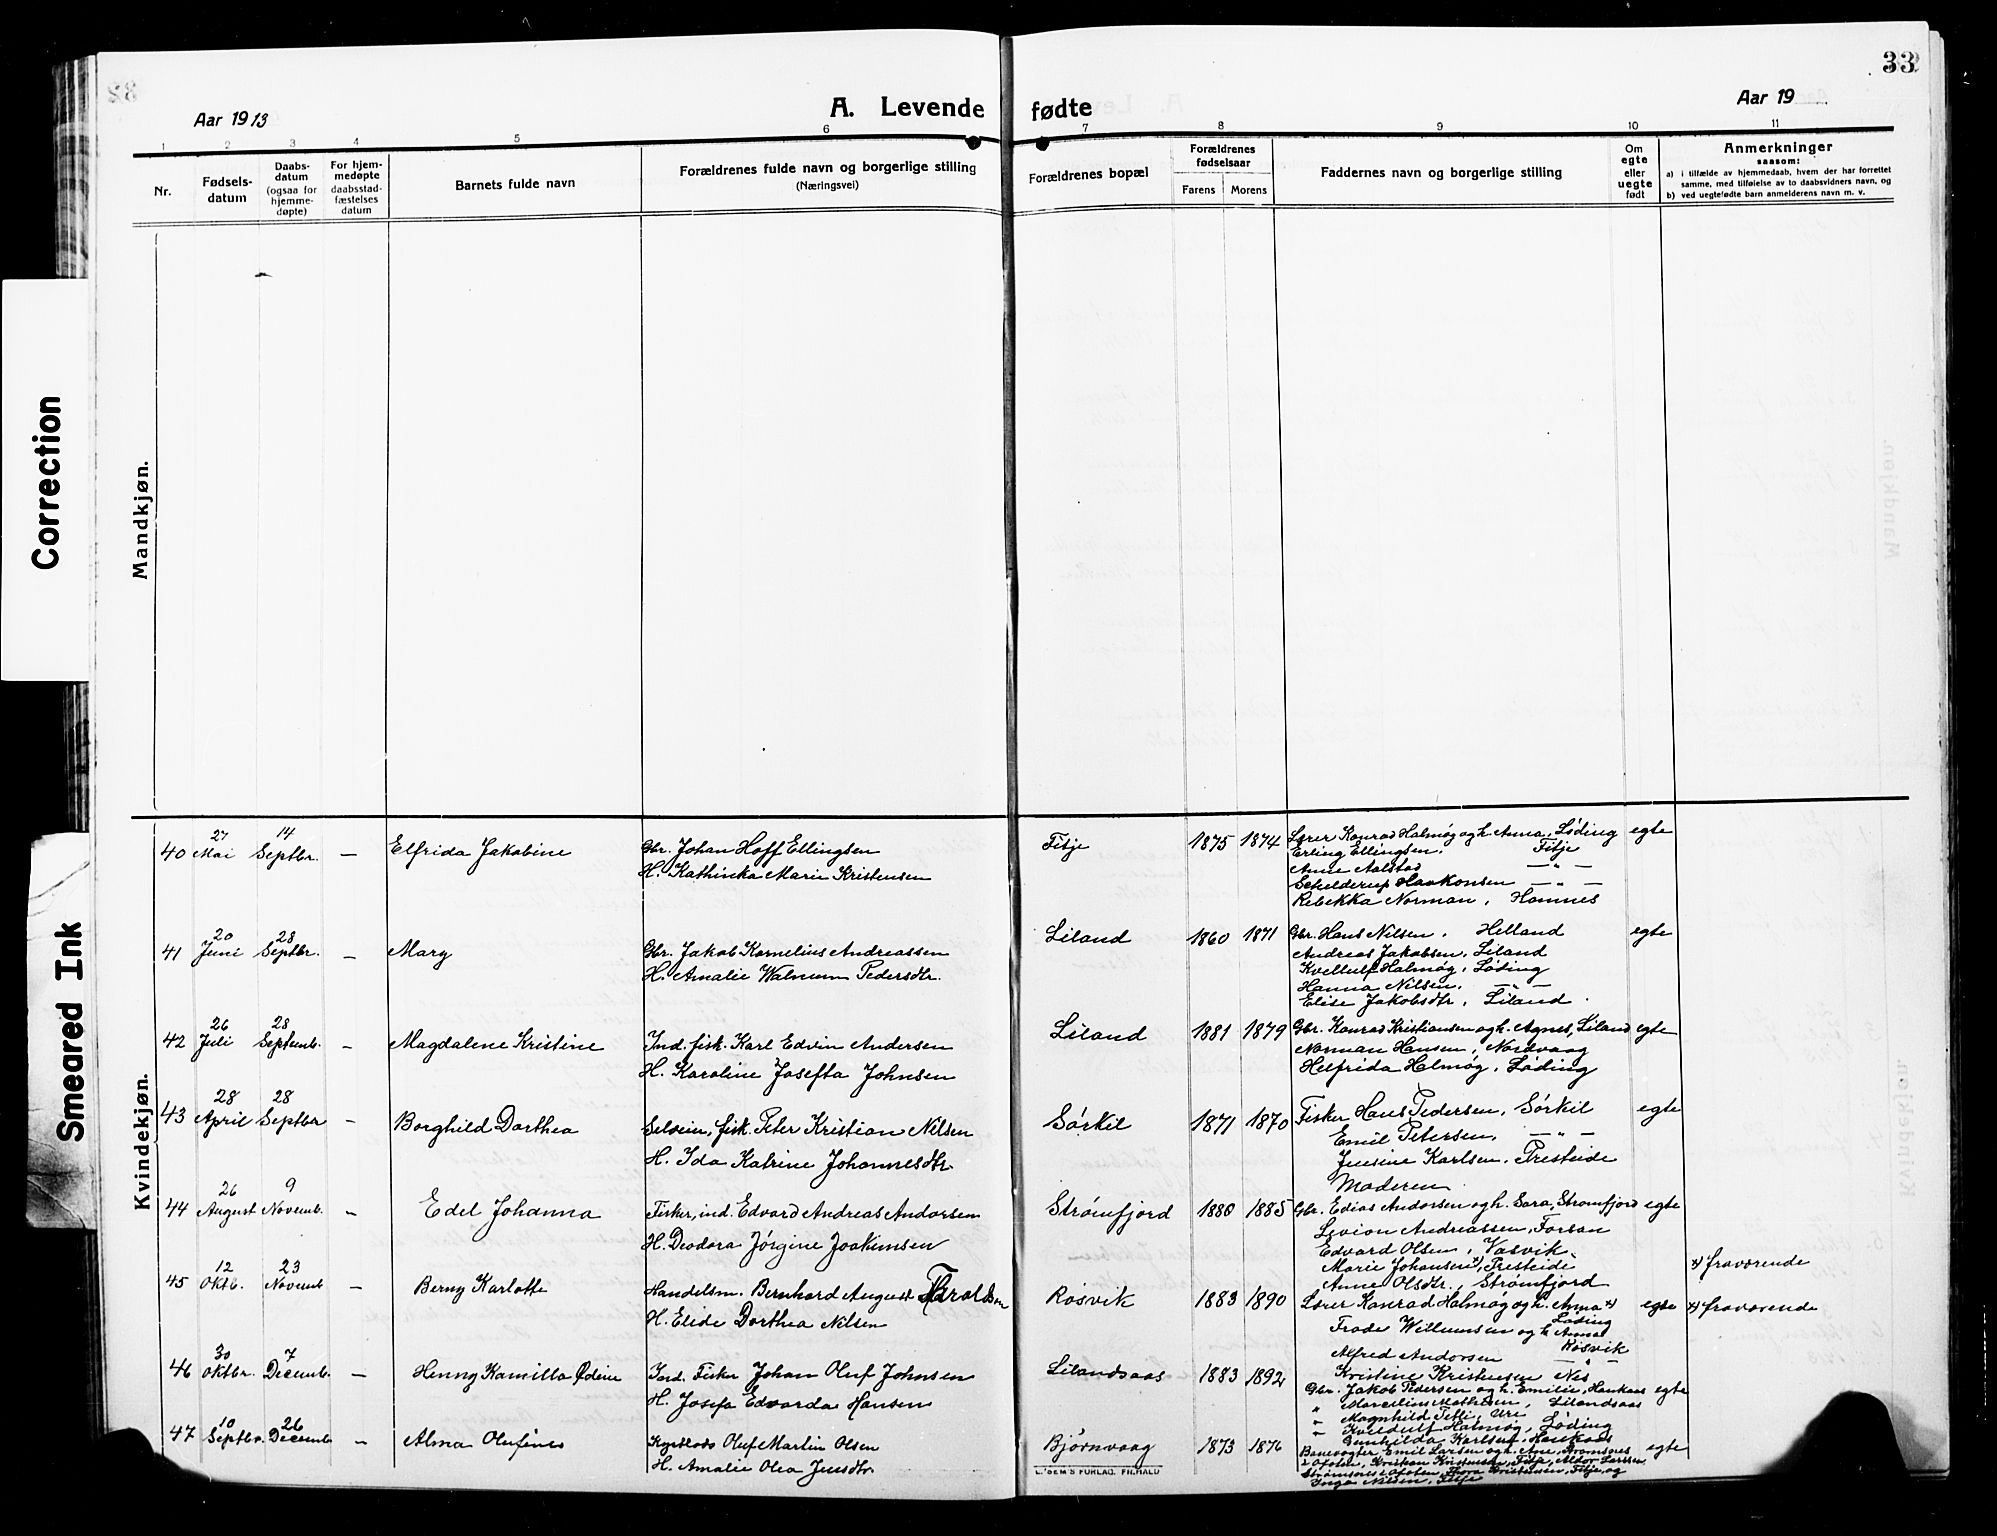 33
Aar 1913
A. Levende fødte
Aar 19
1 2 3 4 5 6 7 8 9 10 11
Nr.
Fødsels-
datum
Daabs-
datum
(ogsaa for
hjemme-
døpte)
For hjem-
medøpte
daabsstad-
fæstelses
datum
Barnets fulde navn
Forældrenes fulde navn og borgerlige stilling
(Næringsvei)
Forældrenes bopæl
Forældrenes
fødselsaar
Farens Morens
Faddernes navn og borgerlige stilling
Om
egte
eller
uegte
født
Anmerkninger
saasom:
a) i tilfælde av hjemmedaab, hvem der har forrettet
samme, med tilføielse av to daabsvidners navn, og
b) ved uegtefødte barn anmelderens navn m. v.
Correction
Smeared Ink
Mandkjøn.
Kvindekjøn.
40 27 Mai 14 Septbr. — Elfrida Jakobine
Gbr. Johan Hoff Ellingsen
H. Kathinka Marie Kristensen
Fitje 1875 1874
Lærer Konrad Halmøg og h. Anna, Løding egte
Erling Ellingsen. Fitje
Anne Aalstad — " —
Schelderup Haakonsen — " —
Rebekka Norman, Hamnes
41 20 Juni 28 Septbr. — Mary
Gbr. Jakob Kornelius Andreassen
H. Amalie Walnum Pedersdtr.
Liland 1860 1871
Gbr. Hans Nilsen. Helland egte
Andreas Jakobsen, Liland
Kvellulf Halmøg, Løding
Hanna Nilsen. — " —
Elise Jakobsdtr, Liland.
42 26 Juli 28 Septemb. — Magdalene Kristine
Ind. fisk. Karl Edvin Andersen
H. Karoline Josefta Johnsen
Liland 1881 1879
Gbr. Konrad Kristiansen og h. Agnes, Liland egte
Norman Hansen, Nordvaag
Helfrida Halmøg, Løding
43 28 April 28 Septbr — Borghild Dorthea
Selveier, fisk. Peter Kristian Nilsen
H. Ida Katrine Johannesdtr.
Sørkil 1871 1870
Fisker Hans Pedersen, Sørkil egte
Emil Petersen, — " —
Jensine Karlsen, Presteide
Moderen
44 26 August 9 Novemb. — Edel Johanna
Fisker, ind. Edvard Andreas Andorsen
H. Deodora Jørgine Joakimsen
Strømfjord 1880 1885
Gbr. Edias Andorsen og h. Sara, Strømfjord egte
Levion Andreassen, Forsan
Edvard Olsen, Vasvik
Marie Johansen x), Presteide x) fraværende
Anne Olsdtr., Strømfjord
45 12 Oktb. 23 Novemb — Berny Karlotte
Handelsm. Bernhard August Haraldsen
H. Elide Dorthea Nilsen
Rosvik 1883 1890
Lærer Konrad Halmøg og h. Anna x) egte x) fraværende
Løding
Frode Willumsen og h. Anna
Rosvik
Alfred Andorsen — " —
Kristine Kristensen Nes
46 30 Oktbr. 7 Decemb. — Henny Kamilla Ødine
Ind. Fisker Johan Oluf Johnsen
H. Josefa Edvarda Hansen
Lilandsaas 1883 1892
Gbr. Jakob Pedersen og h. Emilie, Haukaas egte
" Marcelius Mathisen, Lilandsaas
" Kveldulf Halmøg, Løding
Gunhilda Karlsen, Haukaas
47 10 Septbr. 26 Decemb — Alma Olufines
Oluf Martin Olsen
H. Amalie Olea Jensdtr.
Bjørnvaag 1873 1876
Banevogter Emil Larsen og h. Ane, Strømsnes egte
i Ofoten, Kristian Kristensen, Fitje, Aldor Larssen
Strømsnes i Ofoten, Thora Kristensen, Fitje, og
Inga Nilsen, Fitje